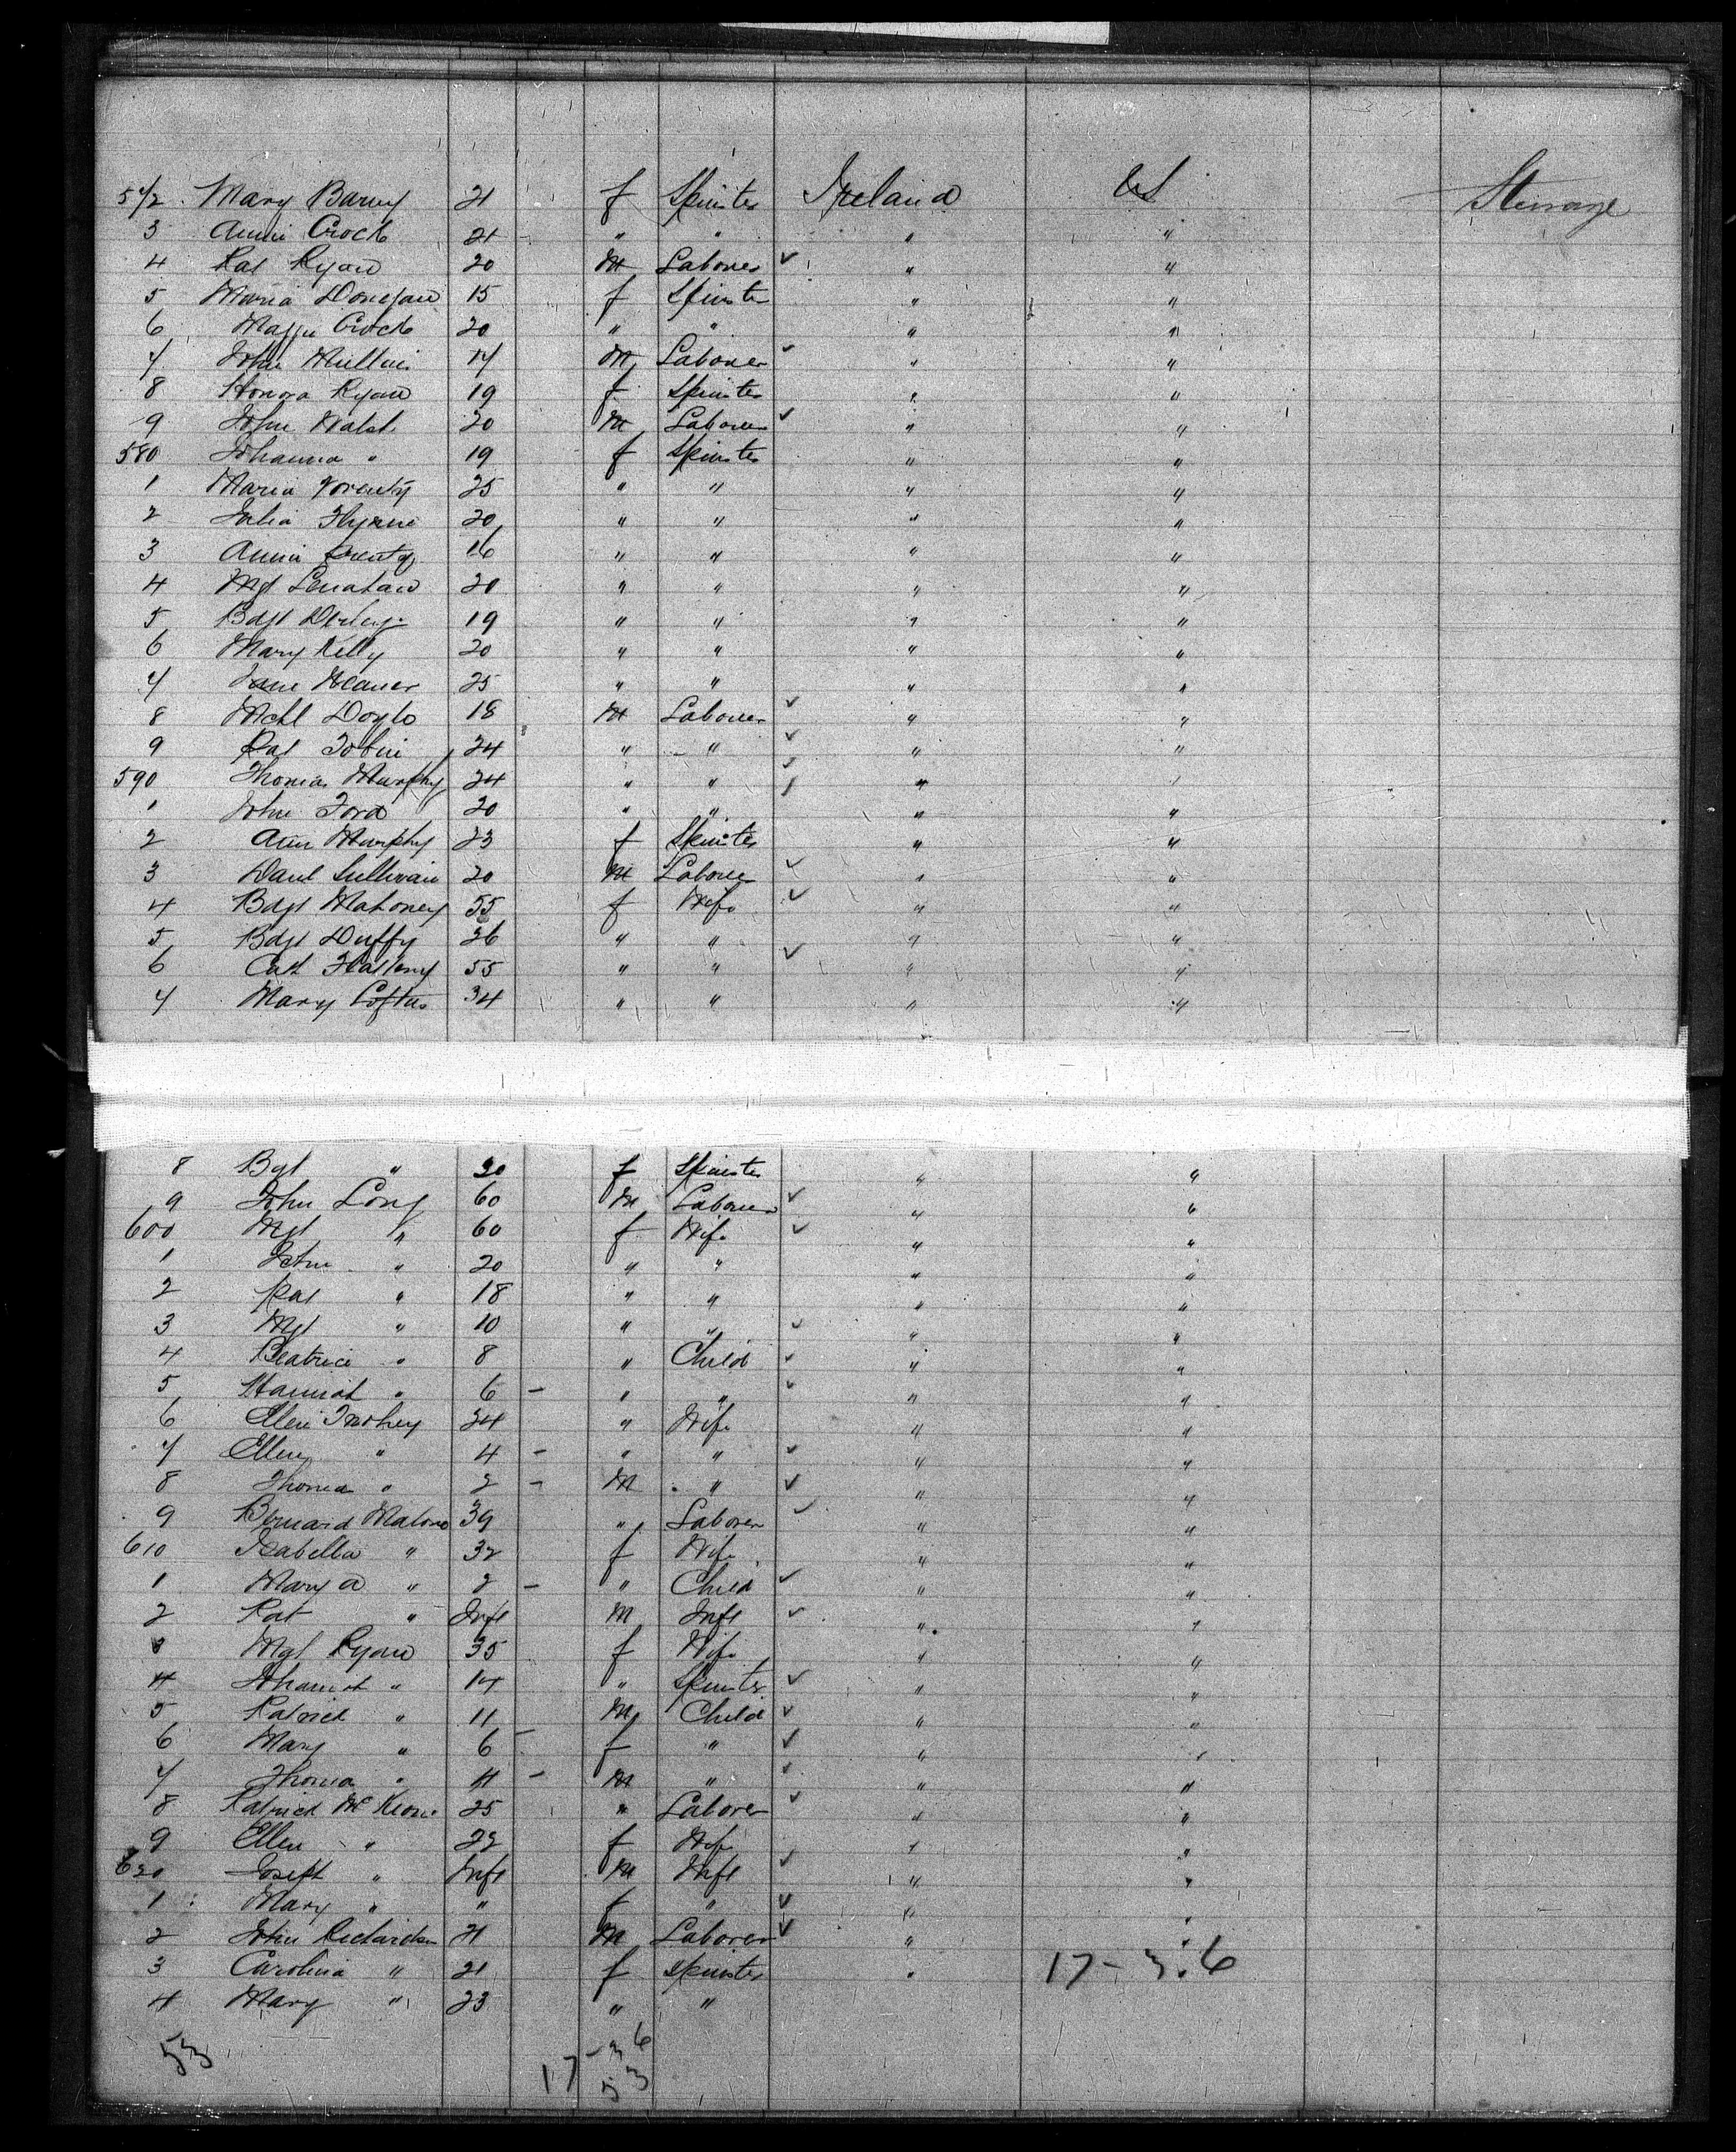 572 Mary Barry 21 f Spinster Ireland US Steerage
3 Annie Crock 21 " " " "
4 Pat Ryan 20 M Laborer ✓ " "
5 Maria Donegan 15 f Spinster " "
6 Maggie Crock 20 " " " "
7 John Mullins 17 M Laborer ✓ " "
8 Honora Ryan 19 f Spinster " "
9 John Walsh 20 M Laborer ✓ " "
580 Johanna " 19 f Spinster " "
1 Maria 25 " " " "
2 Julia Flynne 20 " " " "
3 Annie 16 " " " "
4 Mgt Lenahan 20 " " " "
5 Bdgt 19 " " " "
6 Mary Kelly 20 " " " "
7 Jane Weaver 25 " " " "
8 Michl Doyle 18 M Laborer ✓ " "
9 Pat Tobin 24 " " ✓ " "
590 Thomas Murphy 24 " " ✓ " "
1 John Ford 20 " " ✓ " "
2 Ann Murphy 23 f Spinster " "
3 Danl Sullivan 20 M Laborer ✓ " "
4 Bdgt Mahoney 55 f Wife ✓ " "
5 Bdgt Duffy 26 " " " "
6 Cath Flattery 55 " " ✓ " "
7 Mary Loftus 34 " " " "
8 Bgt " 20 f Spinster " "
9 John Long 60 M Laborer ✓ " "
600 Mgt " 60 f Wife ✓ " "
1 John " 20 " " " "
2 Pat " 18 " " " "
3 Mgt " 10 " " ✓ " "
4 Beatrice " 8 " Child ✓ " "
5 Hannah " 6 - " " ✓ " "
6 Ellen Twohey 24 " Wife " "
7 Ellen " 4 - " " ✓ " "
8 Thomas " 2 - M " ✓ " "
9 Bernard Malone 39 " Laborer ✓ " "
610 Isabella " 32 f Wife " "
1 Mary A " 2 - " Child ✓ " "
2 Pat " Inft M Inft ✓ " "
3 Mgt Ryan 35 f Wife " "
4 Johannah " 14 " Spinster ✓ " "
5 Patrick " 11 M Child ✓ " "
6 Mary " 6 - f " ✓ " "
7 Thomas " 4 - M " ✓ " "
8 Patrick McKeone 25 " Laborer ✓ " "
9 Ellen " 22 f Wife " "
620 Joseph " Inft M Inft ✓ " "
1 Mary " " f " ✓ " "
2 John Richardson 21 M Laborer ✓ " "
3 Carolina " 21 f Spinster " 17-36
4 Mary " 23 " "
53 17 - 36
53